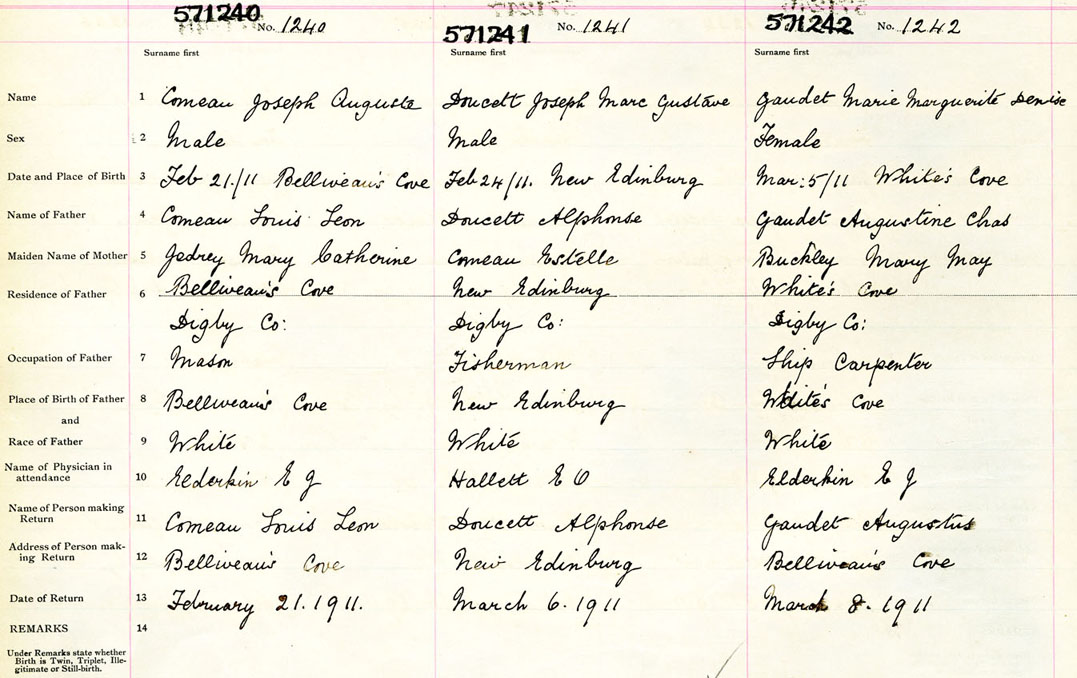 571240 No. 1240 571241 No. 1241 571242 No. 1242
Surname first Surname first Surname first
Name 1 Comeau Joseph Auguste Doucett Joseph Marc Gustave Gaudet Marie Marguerite Denise
Sex 2 Male Male Female
Date and Place of Birth 3 Feb 21./11 Belliveau's Cove Feb 24/11. New Edinburg Mar: 5/11 White's Cove
Name of Father 4 Comeau Louis Leon Doucett Alphonse Gaudet Augustine Chas
Maiden Name of Mother 5 Jedrey Mary Catherine Comeau Estelle Buckley Mary May
Residence of Father 6 Belliveau's Cove New Edinburg White's Cove
Digby Co: Digby Co: Digby Co:
Occupation of Father 7 Mason Fisherman Ship Carpenter
Place of Birth of Father 8 Belliveau's Cove New Edinburg White's Cove
and
Race of Father 9 White White White
Name of Physician in
attendance 10 Elderkin E J Hallett E O Elderkin E J
Name of Person making
Return 11 Comeau Louis Leon Doucett Alphonse Gaudet Augustus
Address of Person mak-
ing Return 12 Belliveau's Cove New Edinburg Belliveau's Cove
Date of Return 13 February 21. 1911. March 6. 1911 March 8. 1911
REMARKS 14
Under Remarks state whether
Birth is Twin, Triplet, Ille-
gitimate or Still-birth.